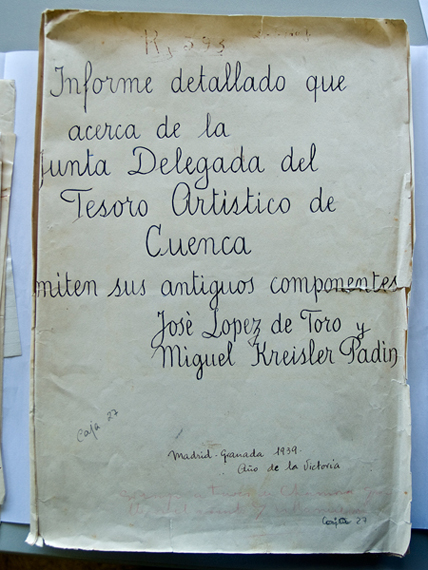 R, 393
Informe detallado que
acerca de la
junta Delegada del
Tesoro Artístico de
Cuenca
miten sus antiguos componentes
Josè Lopez de Toro y
Miguel Kreisler Padin
Caja 27
Madrid-Granada 1939.
Año de la Victoria
Caja 27